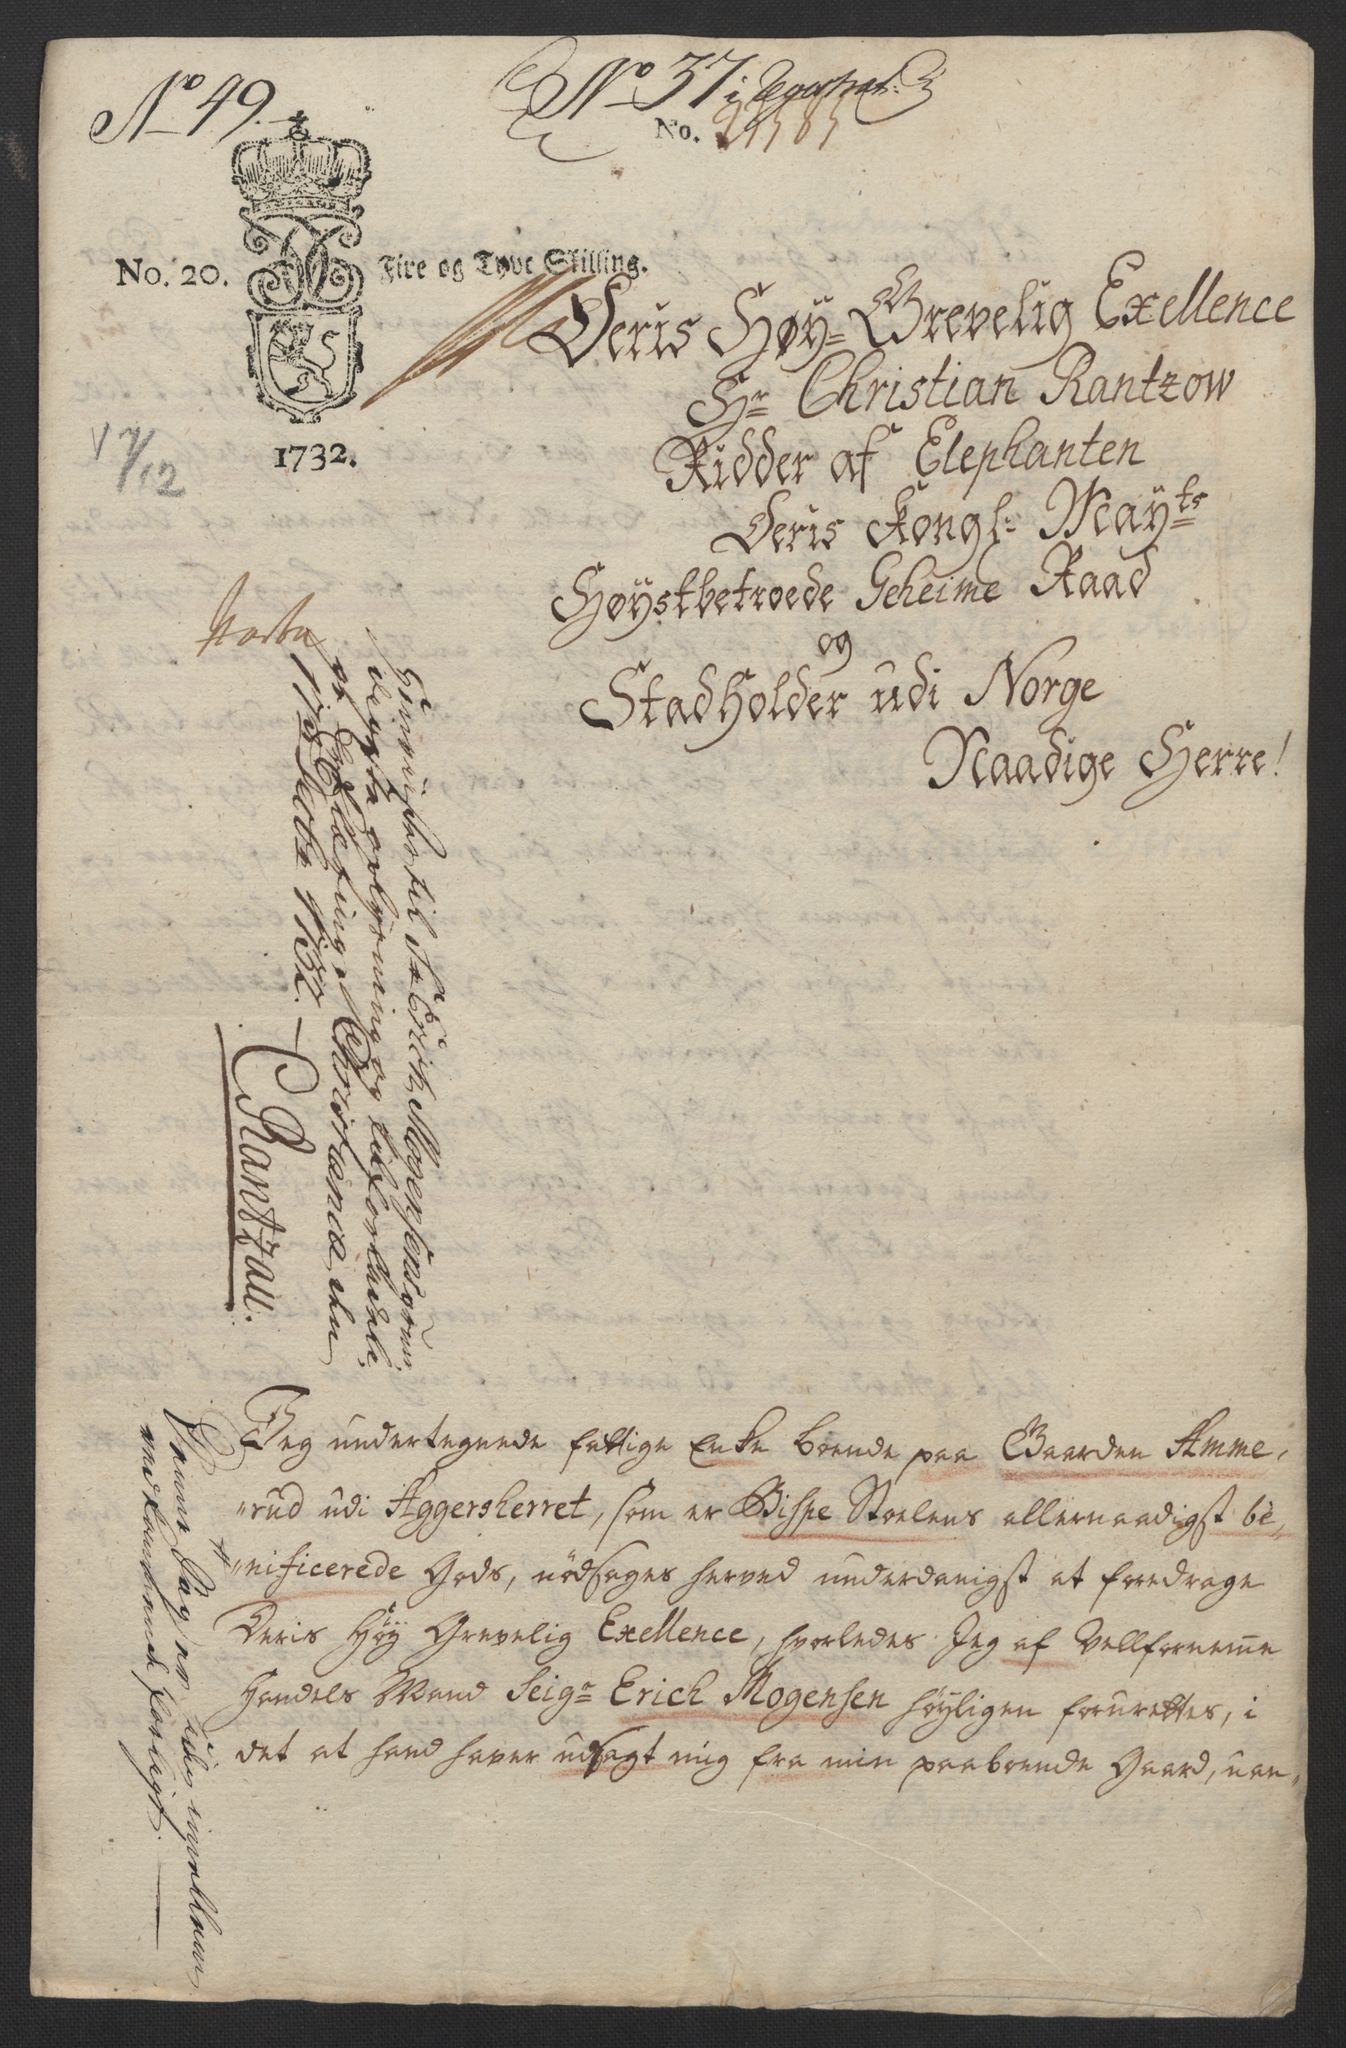 No 49.
No 37 i
No. 21585
No. 20. Fire og Tyve Skilling.
1732.
17/12
Deris Høy= Grevelig Exellence
Hr Christian Rantzow
Ridder af Elephanten
Deris Kongl: Mayts
Høystbetroede Geheime Raad
og
Stadholder udi Norge
Naadige Herre!
til Sr Erich Mogensens
erklæring og
og Erklæring. Christiania den
17 1732. –
C Rantzau.
Jeg undertegnede fattige Enke boende paa Gaarden Amme,
„rud udi Aggersherret, som er Bispe Stoelens allernaadigst be,
„nificerede Gods, nödsages herved underdanigst at foredrage
Deris Høy Grevelig Exellence, hvorledes Jeg af Vellfornemme
Handels Mand Seigr Erich Mogensen høyligen forurettes, i
det at hand haver udsagt mig fra min paaboende Gaard, uan„